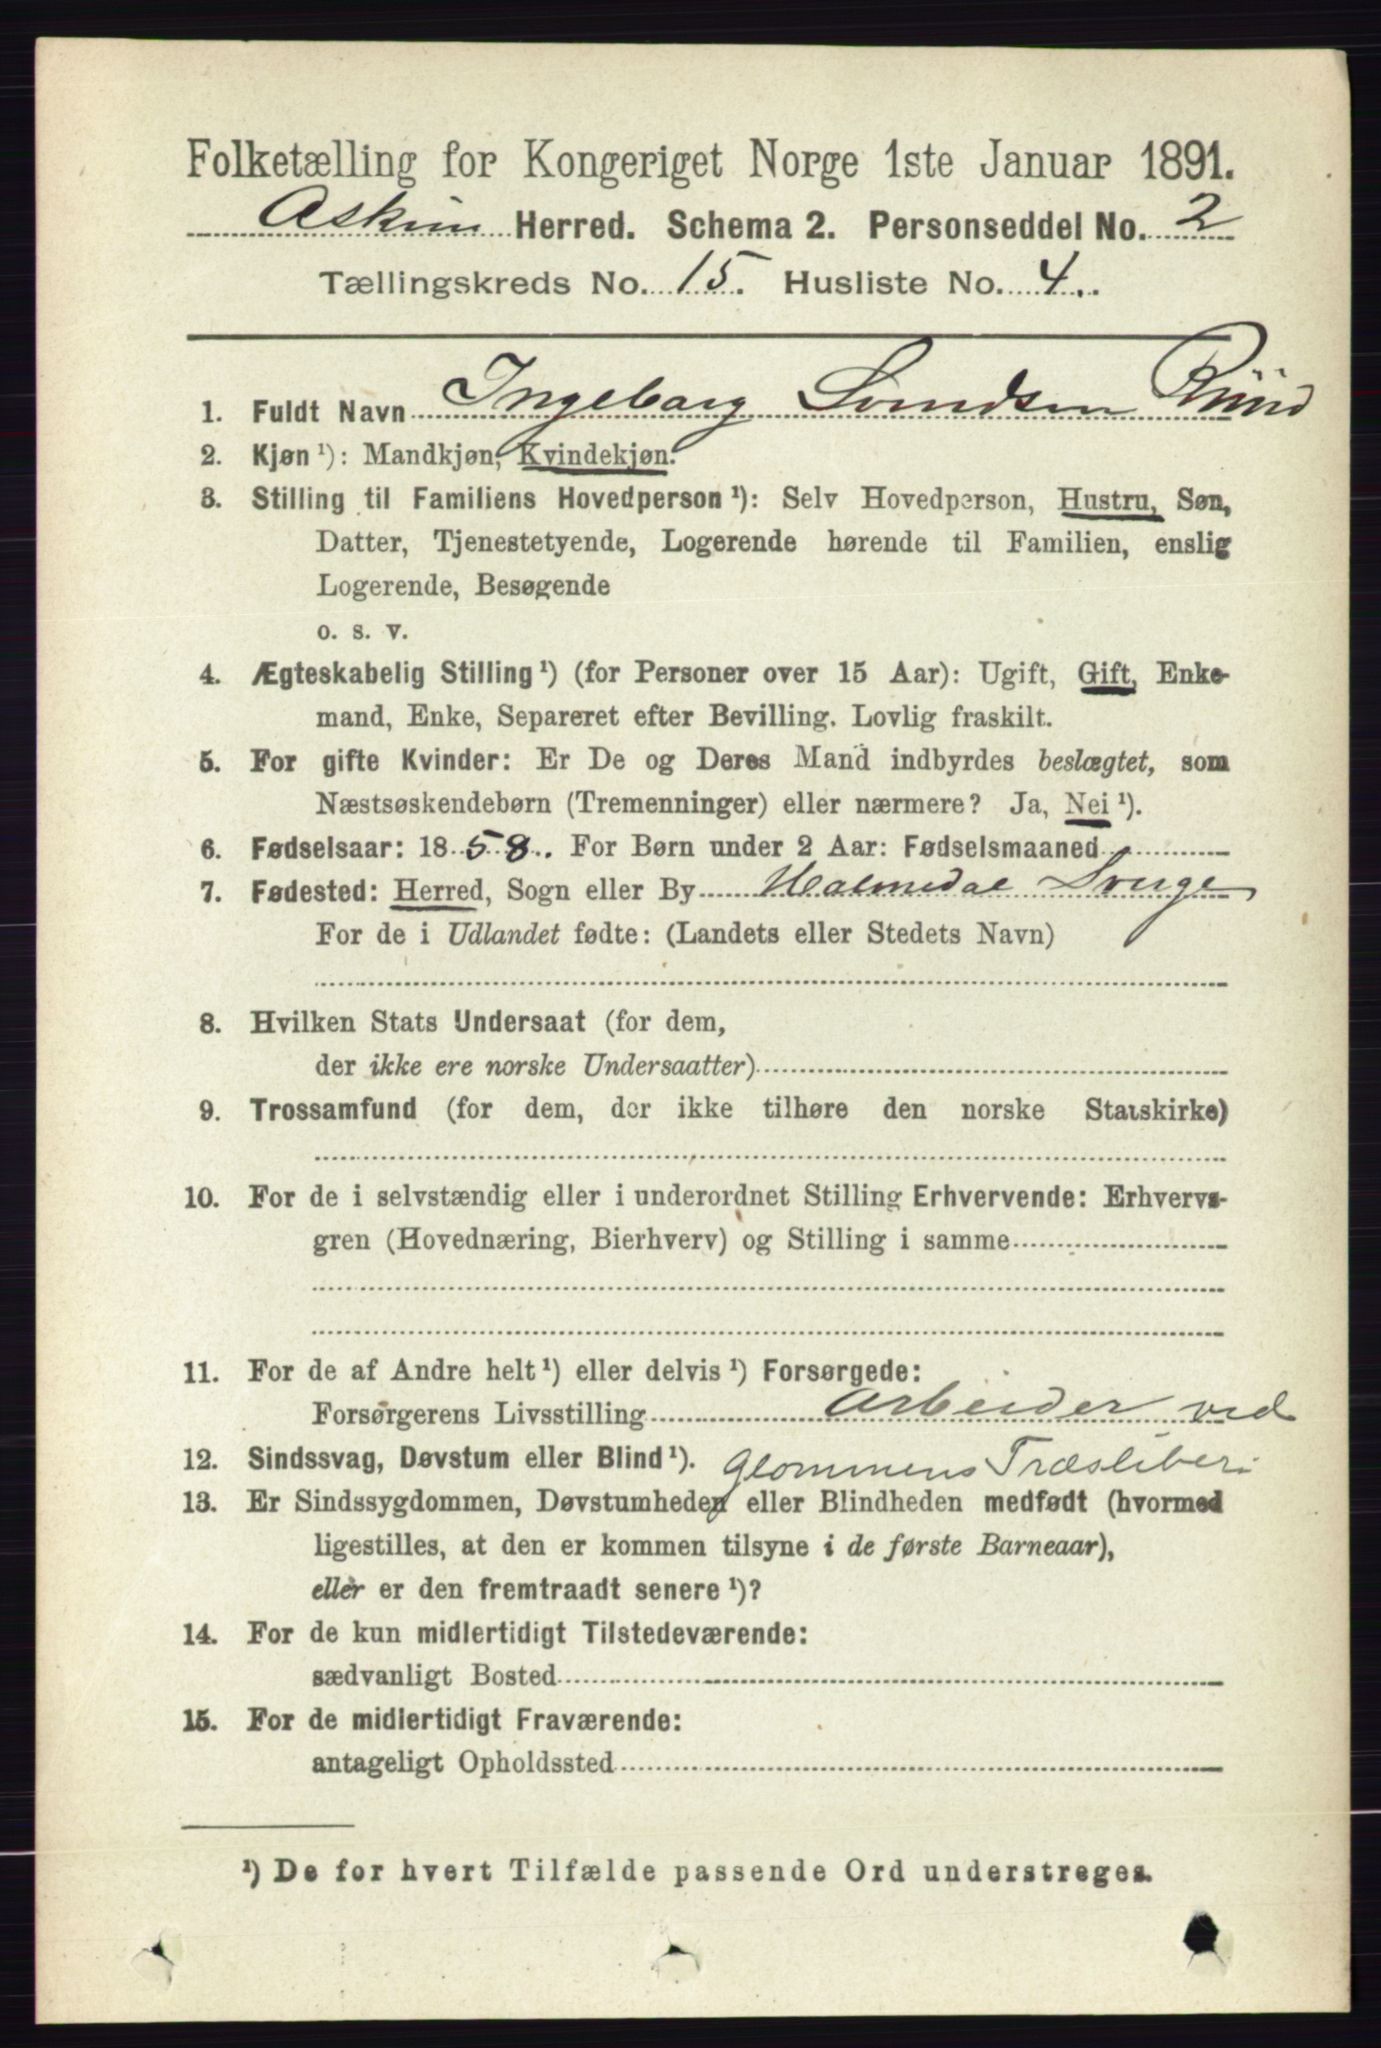 Folketælling for Kongeriget Norge 1ste Januar 1891.
Askim Herred. Schema 2. Personseddel No. 2
Tællingskreds No. 15. Husliste No. 4.
1. Fuldt Navn Ingeborg Svendsen
2. Kjøn ¹): Mandkjøn, Kvindekjøn.
3. Stilling til Familiens Hovedperson ¹): Selv Hovedperson, Hustru, Søn,
Datter, Tjenestetyende, Logerende hørende til Familien, enslig
Logerende, Besøgende
o. s. v.
4. Ægteskabelig Stilling ¹) (for Personer over 15 Aar): Ugift, Gift, Enke-
mand, Enke, Separeret efter Bevilling. Lovlig fraskilt.
5. For gifte Kvinder: Er De og Deres Mand indbyrdes beslægtet, som
Næstsøskendebørn (Tremenninger) eller nærmere? Ja, Nei ¹).
6. Fødselsaar: 1858. For Børn under 2 Aar: Fødselsmaaned
7. Fødested: Herred, Sogn eller By Holmedal Sverge
For de i Udlandet fødte: (Landets eller Stedets Navn)
8. Hvilken Stats Undersaat (for dem,
der ikke ere norske Undersaatter)
9. Trossamfund (for dem, der ikke tilhøre den norske Statskirke)
10. For de i selvstændig eller i underordnet Stilling Erhvervende: Erhvervs-
gren (Hovednæring, Bierhverv) og Stilling i samme
11. For de af Andre helt ¹) eller delvis ¹) Forsørgede:
Forsørgerens Livsstilling Arbeider ved
12. Sindssvag, Døvstum eller Blind ¹). Glommens Træsliberi
13. Er Sindssygdommen, Døvstumheden eller Blindheden medfødt (hvormed
ligestilles, at den er kommen tilsyne i de første Barneaar),
eller er den fremtraadt senere ¹)?
14. For de kun midlertidigt Tilstedeværende:
sædvanligt Bosted
15. For de midlertidigt Fraværende:
antageligt Opholdssted
¹) De for hvert Tilfælde passende Ord understreges.